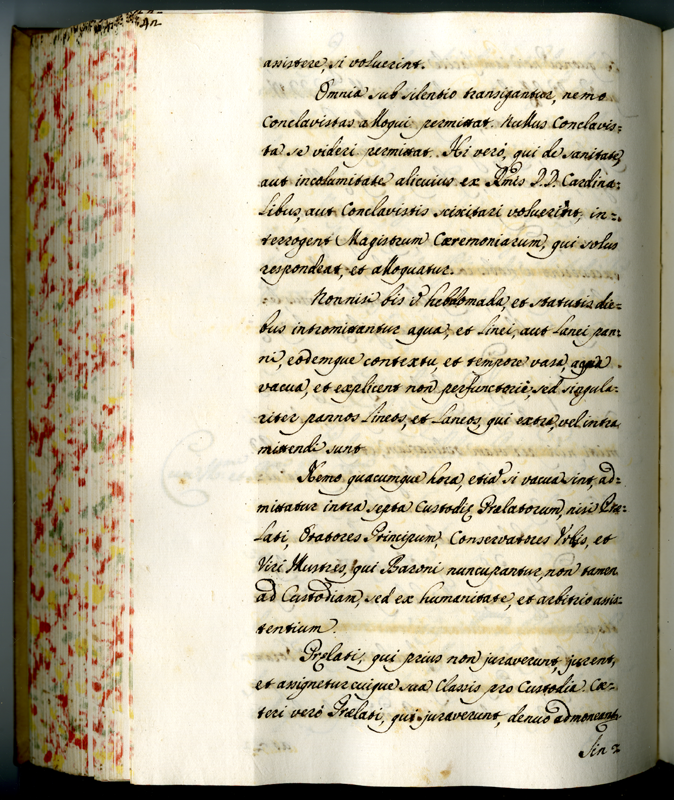 assistere, si voluerint.
Omnia sub silentio transigantur, nemo
Conclavistas alloqui permittat. Nullus Conclavis=
ta se videri permittat. Hi verò, qui de sanitate,
aut incolumitate alicuius ex Rmis D.D. Cardina=
libus, aut Conclavistis scixitari voluerint, in=
terrogent Magistrum Cæremoniarum, qui solus
respondeat, et alloquatur.
Nonnisi bis hebdomada, et statutis die=
bus intromittantur aqua, et linei, aut lanei pan=
ni, eodemque contextu, et tempore vasa, aqua
vacua, et explicent non perfunctoriè, sed singula=
riter pannos lineos, et laneos, qui extra, vel intra
mittendi sunt
Nemo quacumque hora, etiā si vacua sint, ad=
mittatur intra septa Custodię Prælatorum, nisi Præ=
lati, Oratores Principum, Conservatores Urbis, et
Viri Illustres, qui Baroni nuncupantur, non tamen
ad Custodiam, sed ex humanitate, et arbitrio assis=
tentium.
Pręlati, qui prius non juraverunt, jurent,
et assignetur cuique sua Classis pro Custodia. Cæ=
teri verò Prælati, qui juraverunt, denuo admoneant=
Sin